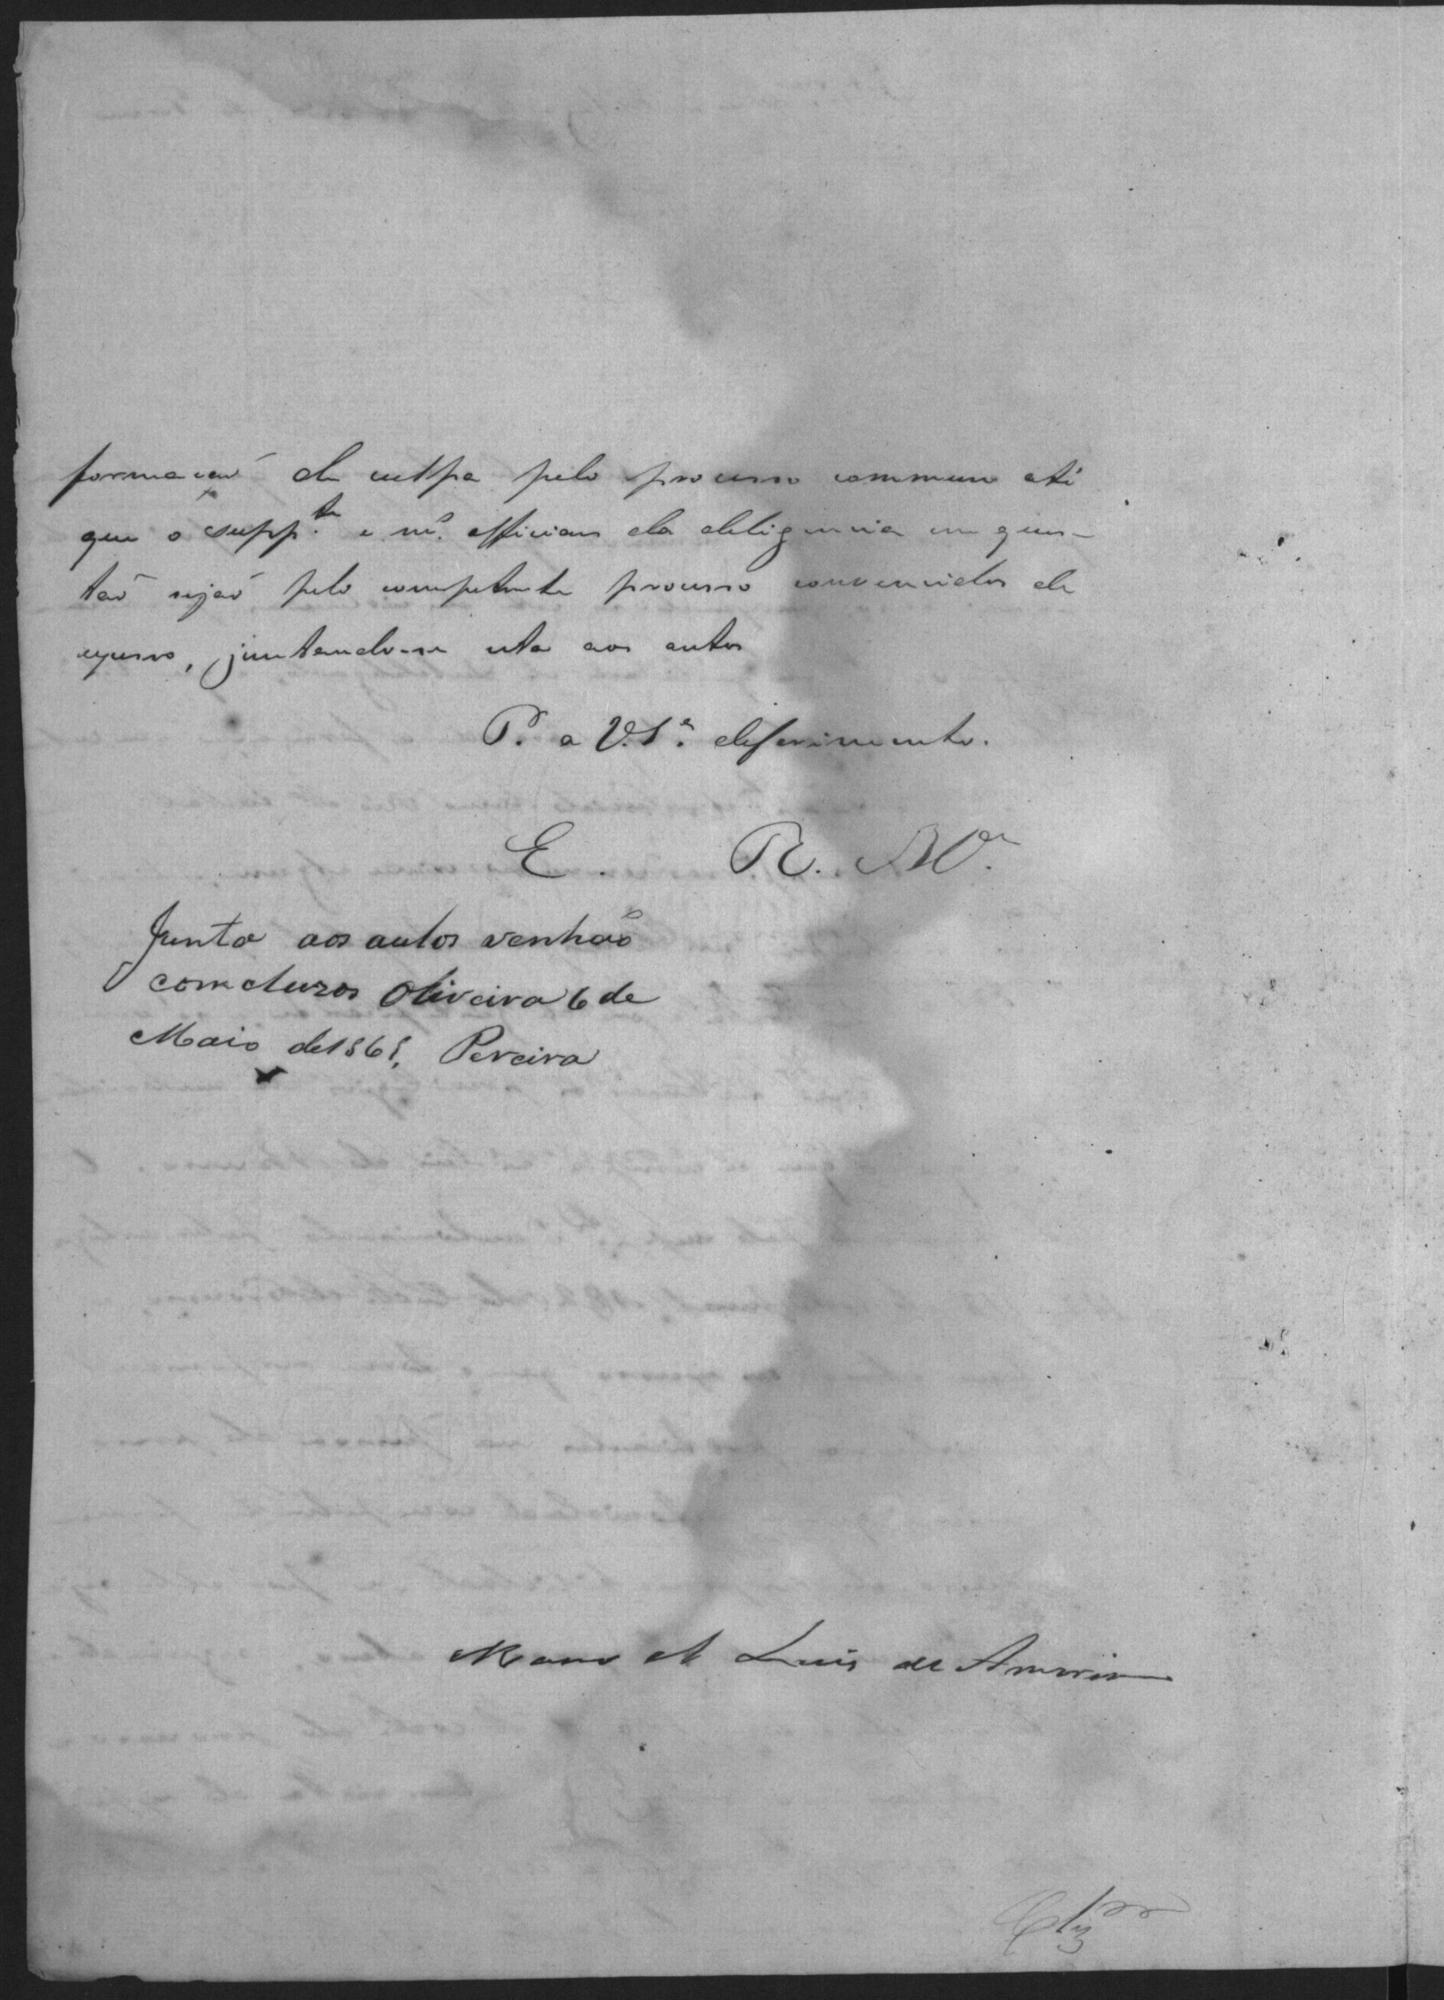 formação de culpa pelo processo commum até
que o supp.te e m.s officiaes da deligencia em ques-
tão sejão pelo competente processo convencidos de
excesso, juntando-se esta aos autos
P. a V.S.ª deferimento.
E. R. M.ce
Junta aos autos venhão
comcluzos Oliveira 6 de
Maio de 1868, Pereira
Mano el Luis de Amorim